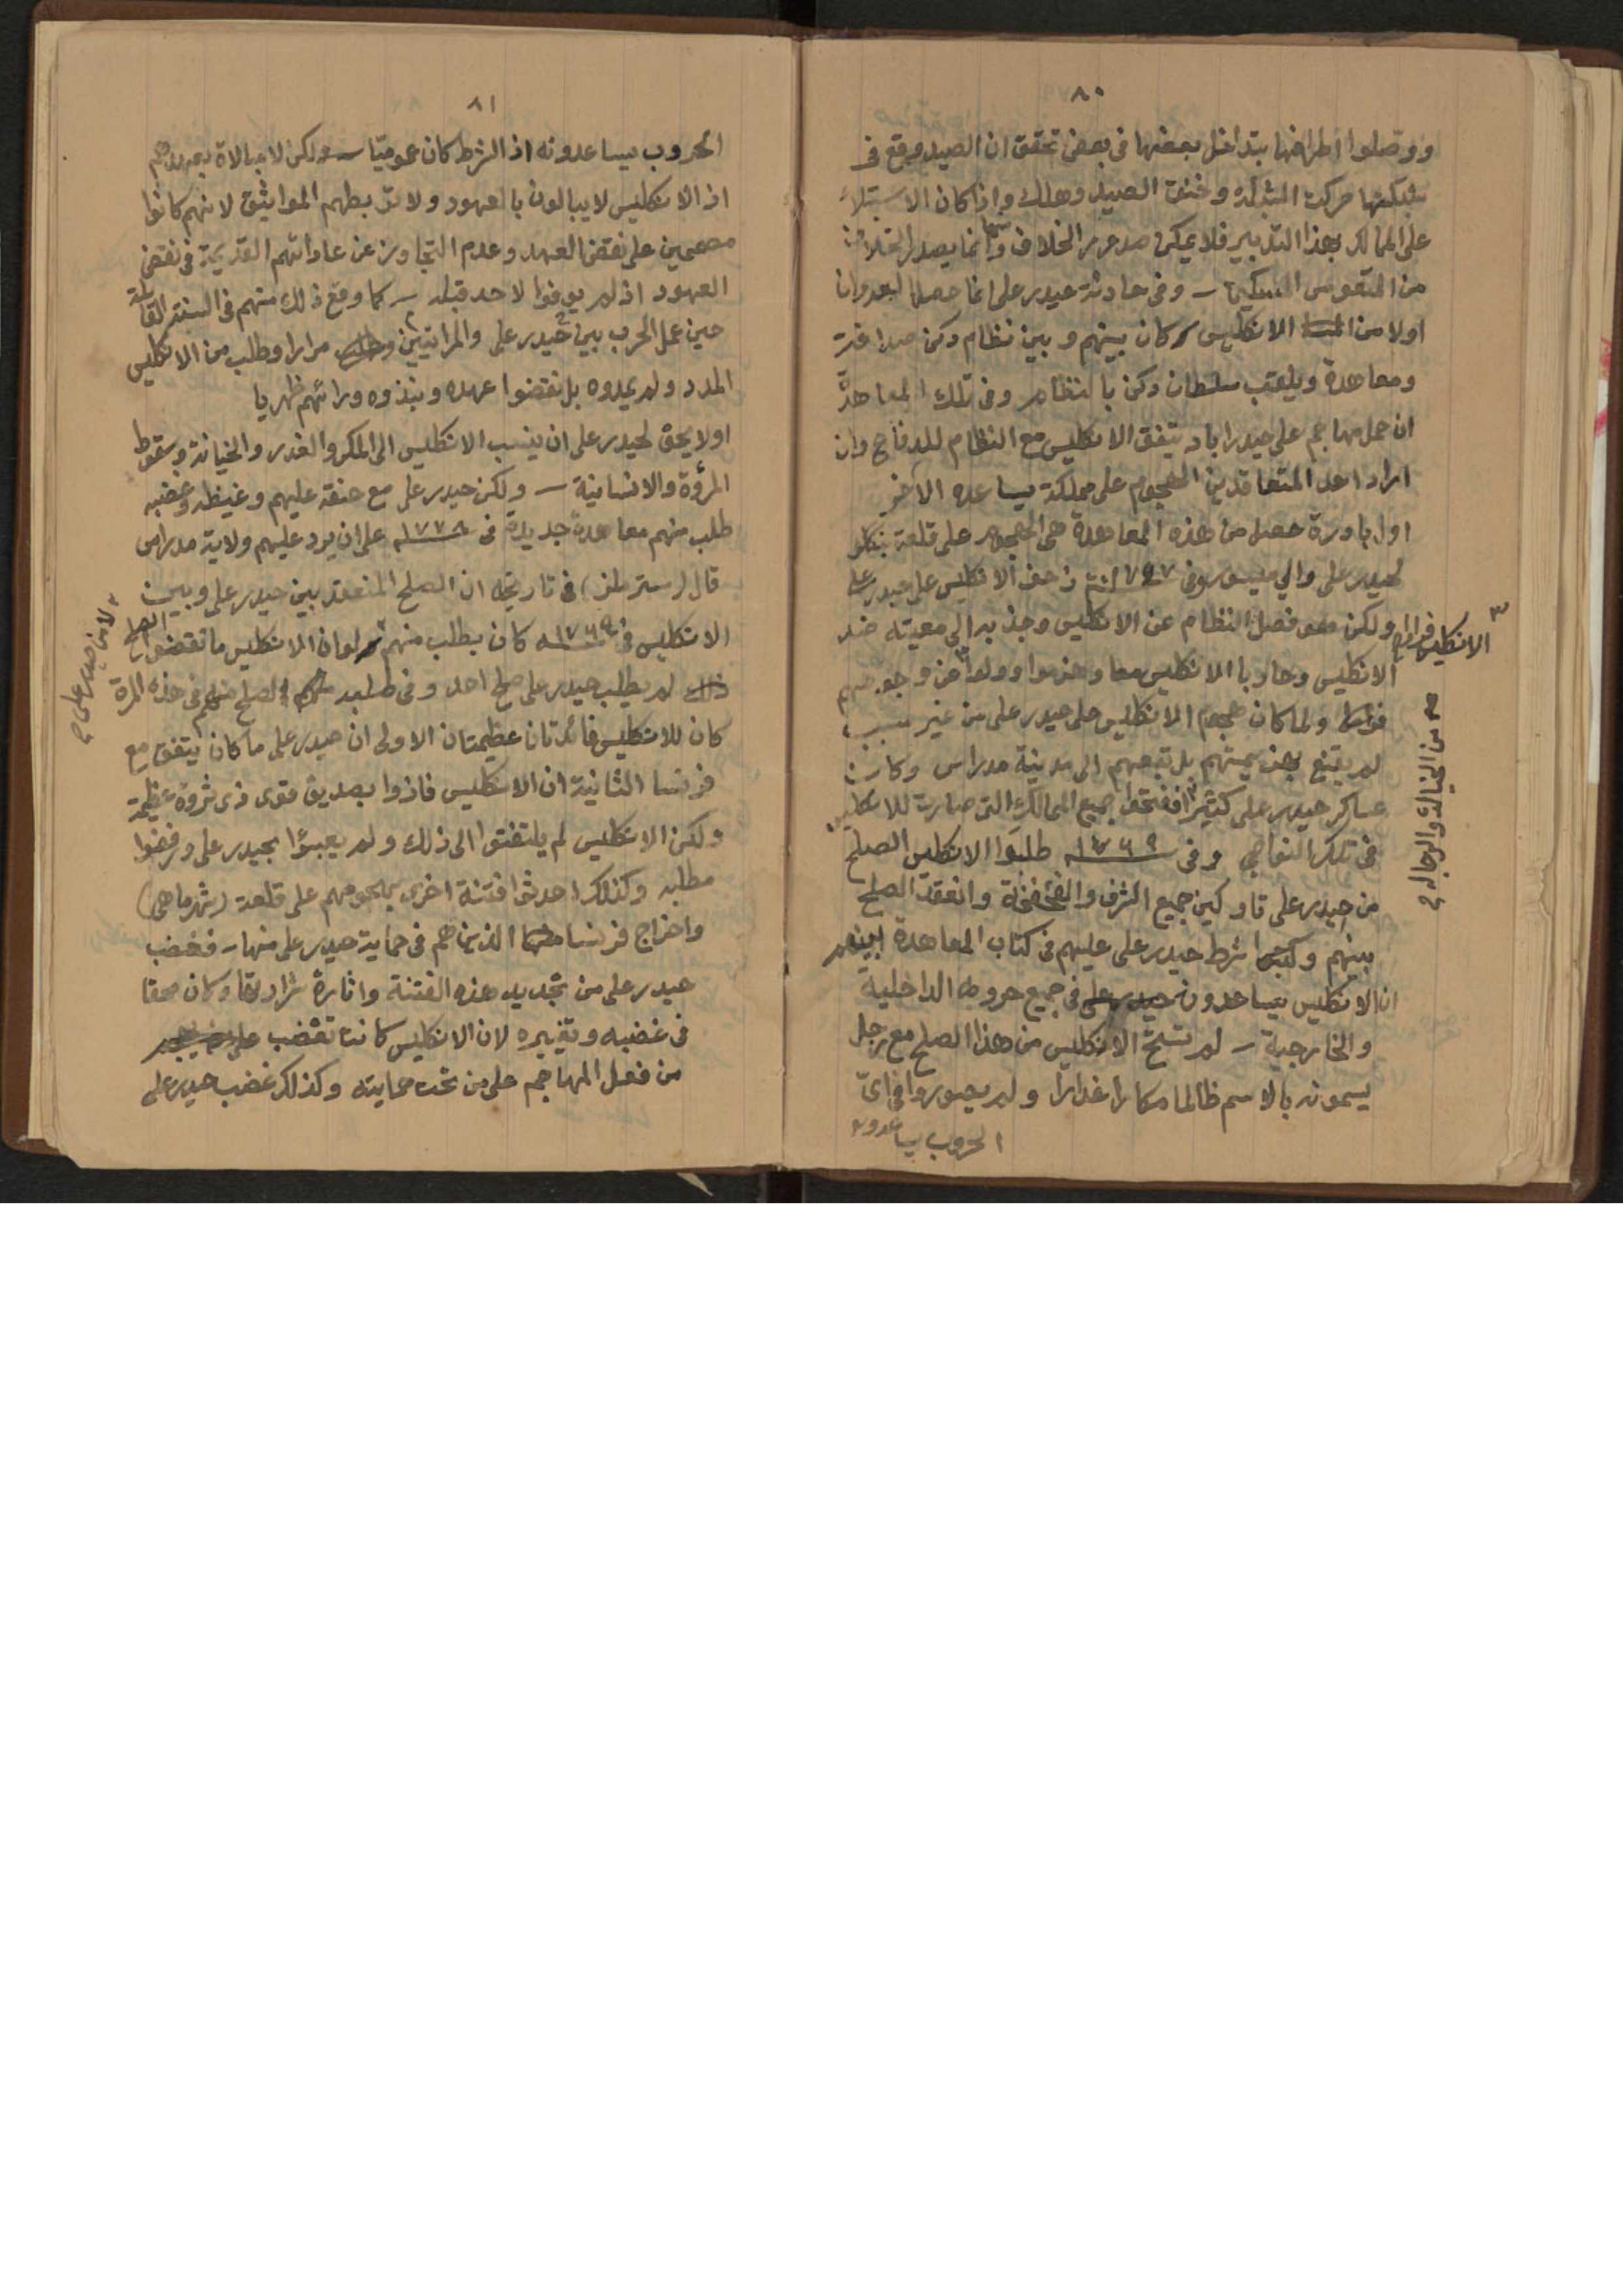 ٨٠
ووصلوا اطرافها بتداخل بعضها فى بعض تحقق ان الصيد وقع فى
شبكتها حركت الشبكة وخنق الصيد وهلك واذا كان الاستيلاء
على الممالك بهذا التدبير فلا يمكن صدور الخلاف وانما يصدر الخلاف
من النفوس - وفى حادثة حيدر على انما حصل العدوان
اولا من الانكليس كان بينهم وبين نظام دكن صداقة
ومعاهدة ويلقب سلطان دكن بالنظام وفى تلك المعاهدة
ان حمل مهاجم على حيدراباد يتفق الانكليس مع النظام للدفاع وان
اراد احد المتعاقدين الهجوم على مملكة يساعده الآخر
اول بادرة حصل من هذه المعاهدة هى الهجوم على قلعة
لحيدر على والي ميسور وفى زحف الانكليس على حيدر على
ولكن هو فصل النظام عن الانكليس وجذبه الى معيته ضد
الانكليس
الانكليس وحاربا الانكليس معا وهزموا وولوا عن وجوههم
ولما كان هجوم الانكليس على حيدر على من غير سبب
لم يقنع بهزيمتهم بل تبعهم الى مدينة مدراس وكان
عساكر حيدر على كثيرا ففتحوا جميع الممالك التى صارت للانكليس
من الخيالة والرجالة
فى تلك النواحي وفى ١٧٦٩ طلبوا الانكليس الصلح
من حيدر على تاركين جميع الشرف وانعقد الصلح
بينهم شرط حيدر على عليهم فى كتاب المعاهدة
ان الانكليس يساعدون حيدر على فى جميع حروبه الداخلية
والخارجية - لم تستح الانكليس من هذا الصلح مع رجل
يسمونه بالاسم ظالما مكارا غدارا ولم يصوروا فى اى
الحروب يساعدونه
٨١
الحروب يساعدونه اذ الشرط كان عموميا - ولكن لا مبالاة بعهدهم
اذ الانكليس لا يبالون بالعهود ولا تربطهم المواثيق لانهم كانوا
مصممين على نقض العهد وعدم التجاوز عن عاداتهم القديمة فى نقض
العهود اذ لم يوفوا لاحد قبله - كما وقع ذلك منهم فى السنة القابلة
حين عمل الحرب بين حيدر على مرارا وطلب من الانكليس
المدد ولم يمدوه بل نقضوا عهده ونبذوه ورائهم ظهريا
اولا يحق لحيدر على ان ينسب الانكليس الى المكر والغدر والخيانة وسقوط
المرؤة والانسانية - ولكن حيدر على مع حنقه عليهم وغيظه وغضبه
طلب منهم معاهدة جديدة فى ١٧٧٨ على ان يرد عليهم ولاية مدراس
قال فى تاريخه ان الصلح المنعقد بين حيدر على وبين
الانكليس فى ١٧٦٩ كان بطلب منهم لو ان الانكليس ما نقضوا الصلح
لاين حيدر على
لم يطلب حيدر على صلح احد وفى الصلح منهم فى هذه المرة
كان للانكليس فائدتان عظيمتان الاولى ان حيدر على ما كان يتفق مع
فرنسا الثانية ان الانكليس فازوا بصديق قوى ذى ثروة عظيمة
ولكن الانكليس لم يلتفتوا الى ذلك ولم يعبئوا بحيدر على ورفضوا
مطلبه وكذلك احدثوا فتنة اخرى بهجومهم على قلعة
واخراج فرنسا الذين هم فى حماية حيدر على منها - فغضب
حيدر على من تجديد هذه الفتنة واثارة شرارتها وكان محقا
فى غضبه وتغييره لان الانكليس كانت تغضب
من فعل المهاجم على من تحت حمايته وكذلك غضب حيدر على